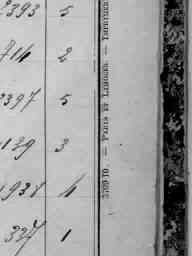 2393 5
914 2
2397 5
1129 3
1931 4
327 1
3709-10. — PARIS ET LIMOGES. — IMPRIMERIE